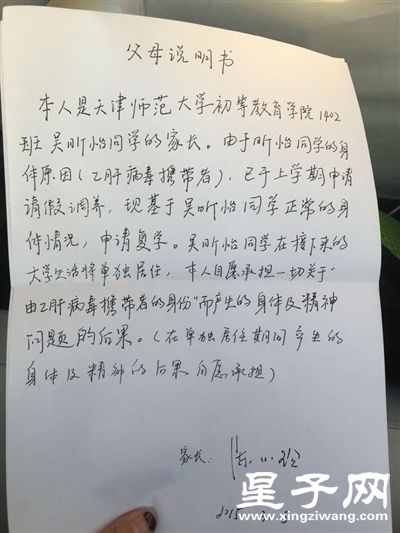 父母说明书
本人是天津师范大学初等教育学院1402
班吴昕怡同学的家长。由于昕怡同学的身
体原因(乙肝病毒携带者),已于上学期申请
请假调养,现基于吴昕怡同学正常的身
体情况,申请复学。吴昕怡同学在接下来的
大学生活将单独居住,本人自愿承担一切关于“
由乙肝病毒携带者的身份”而产生的身体及精神
问题的后果。(在单独居住期间产生的
身体及精神的后果自愿承担)
家长:
2015
星子网
www.xingziwang.com